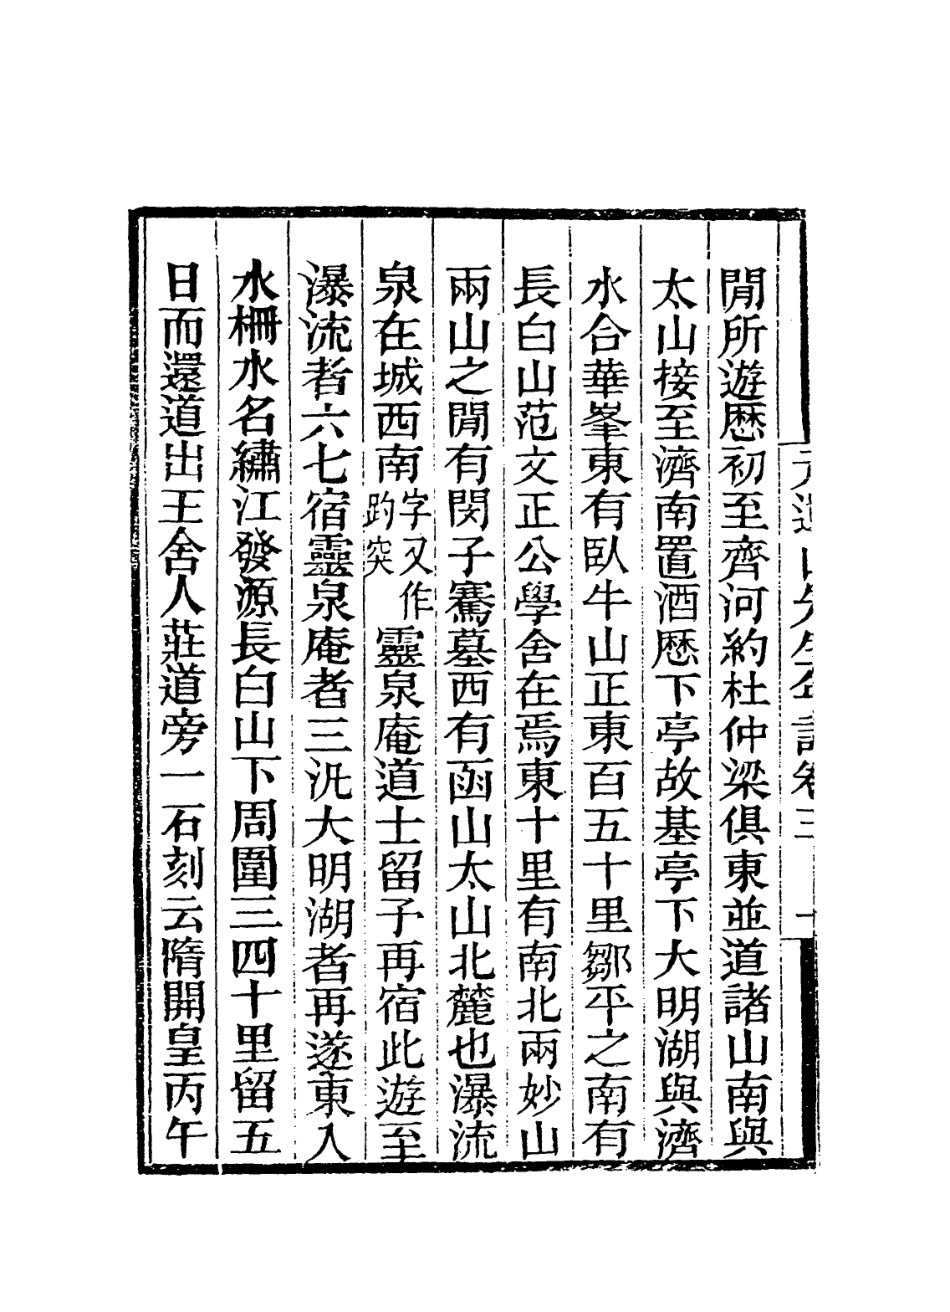 閒所遊歷初至齊河約杜仲梁俱東並道諸山南與
太山接至濟南置酒歷下亭故基亭下大明湖與濟
水合華峯東有臥牛山正東百五十里鄒平之南有
長白山范文正公學舍在焉東十里有南北兩妙山
兩山之閒有閔子騫墓西有函山太山北麓也瀑流
泉在城西南字又作趵突靈泉庵道士留子再宿此遊至
瀑流者六七宿靈泉庵者三汎大明湖者再遂東入
水柵水名繡江發源長白山下周圍三四十里留五
日而還道出王舍人莊道旁一石刻云隋開皇丙午